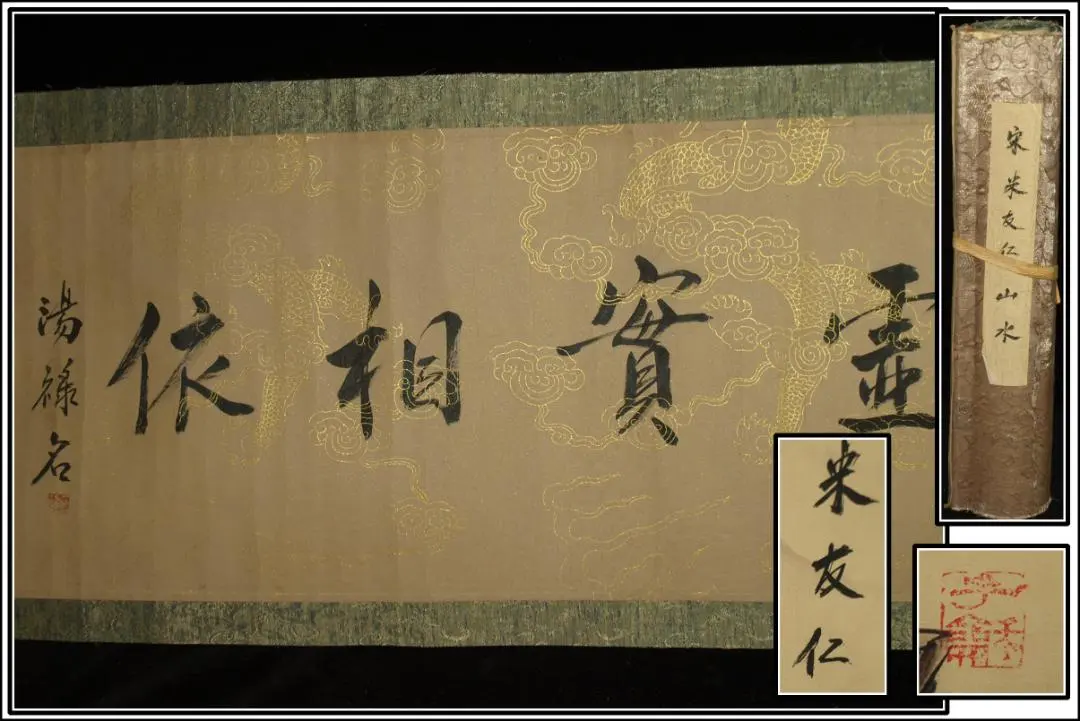 虛實相依
湯祿名
宋米友仁山水
米友仁